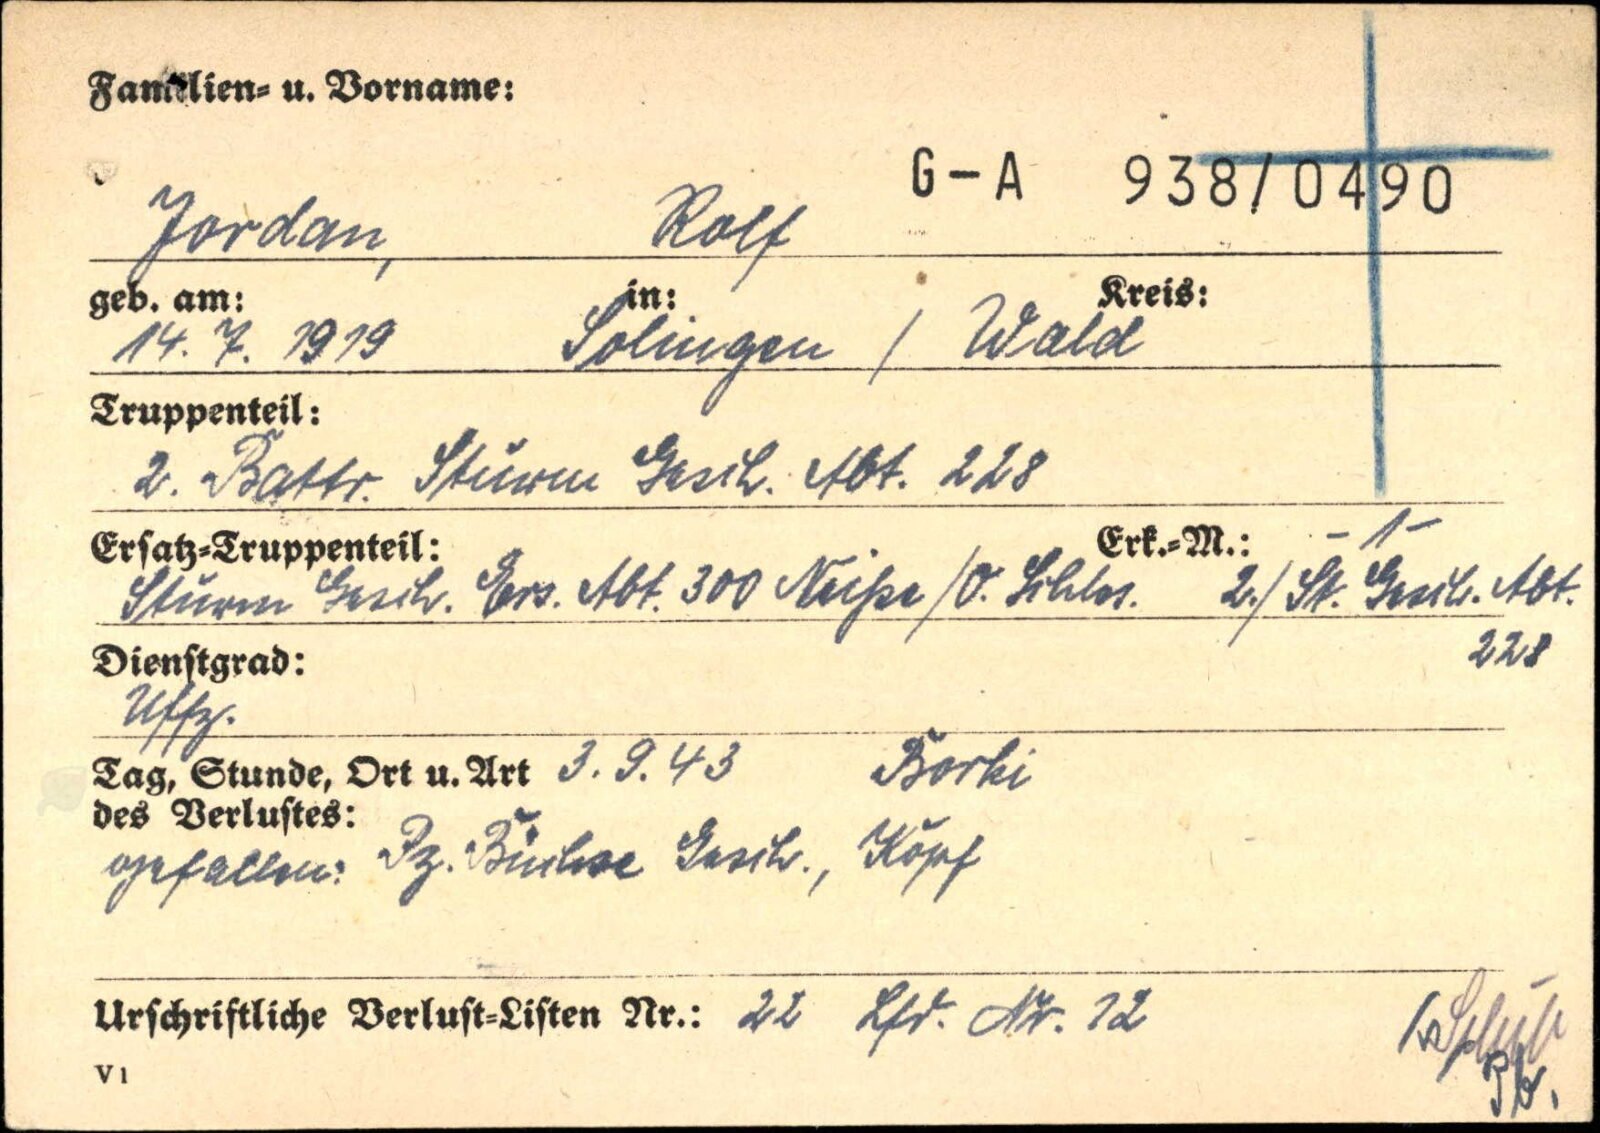 Familien- u. Vorname:
G-A 938/0490
Jordan, Rolf
geb. am: in: Kreis:
14. 7. 1919 Solingen / Wald
Truppenteil:
2. Battr. Sturm Gesch. Abt. 228
Ersatz-Truppenteil: Erk.-M.: - 1 -
Sturm Gesch. Ers. Abt. 300 Neiße/O. Schles. 2./ St. Gesch. Abt.
228
Dienstgrad:
Uffz.
Tag, Stunde, Ort u. Art 3. 9. 43 Borki
des Verlustes:
gefallen: Pz. Büchse Gesch., Kopf
Urschriftliche Verlust-Listen Nr.: 22 Lfd. Nr. 12
V 1